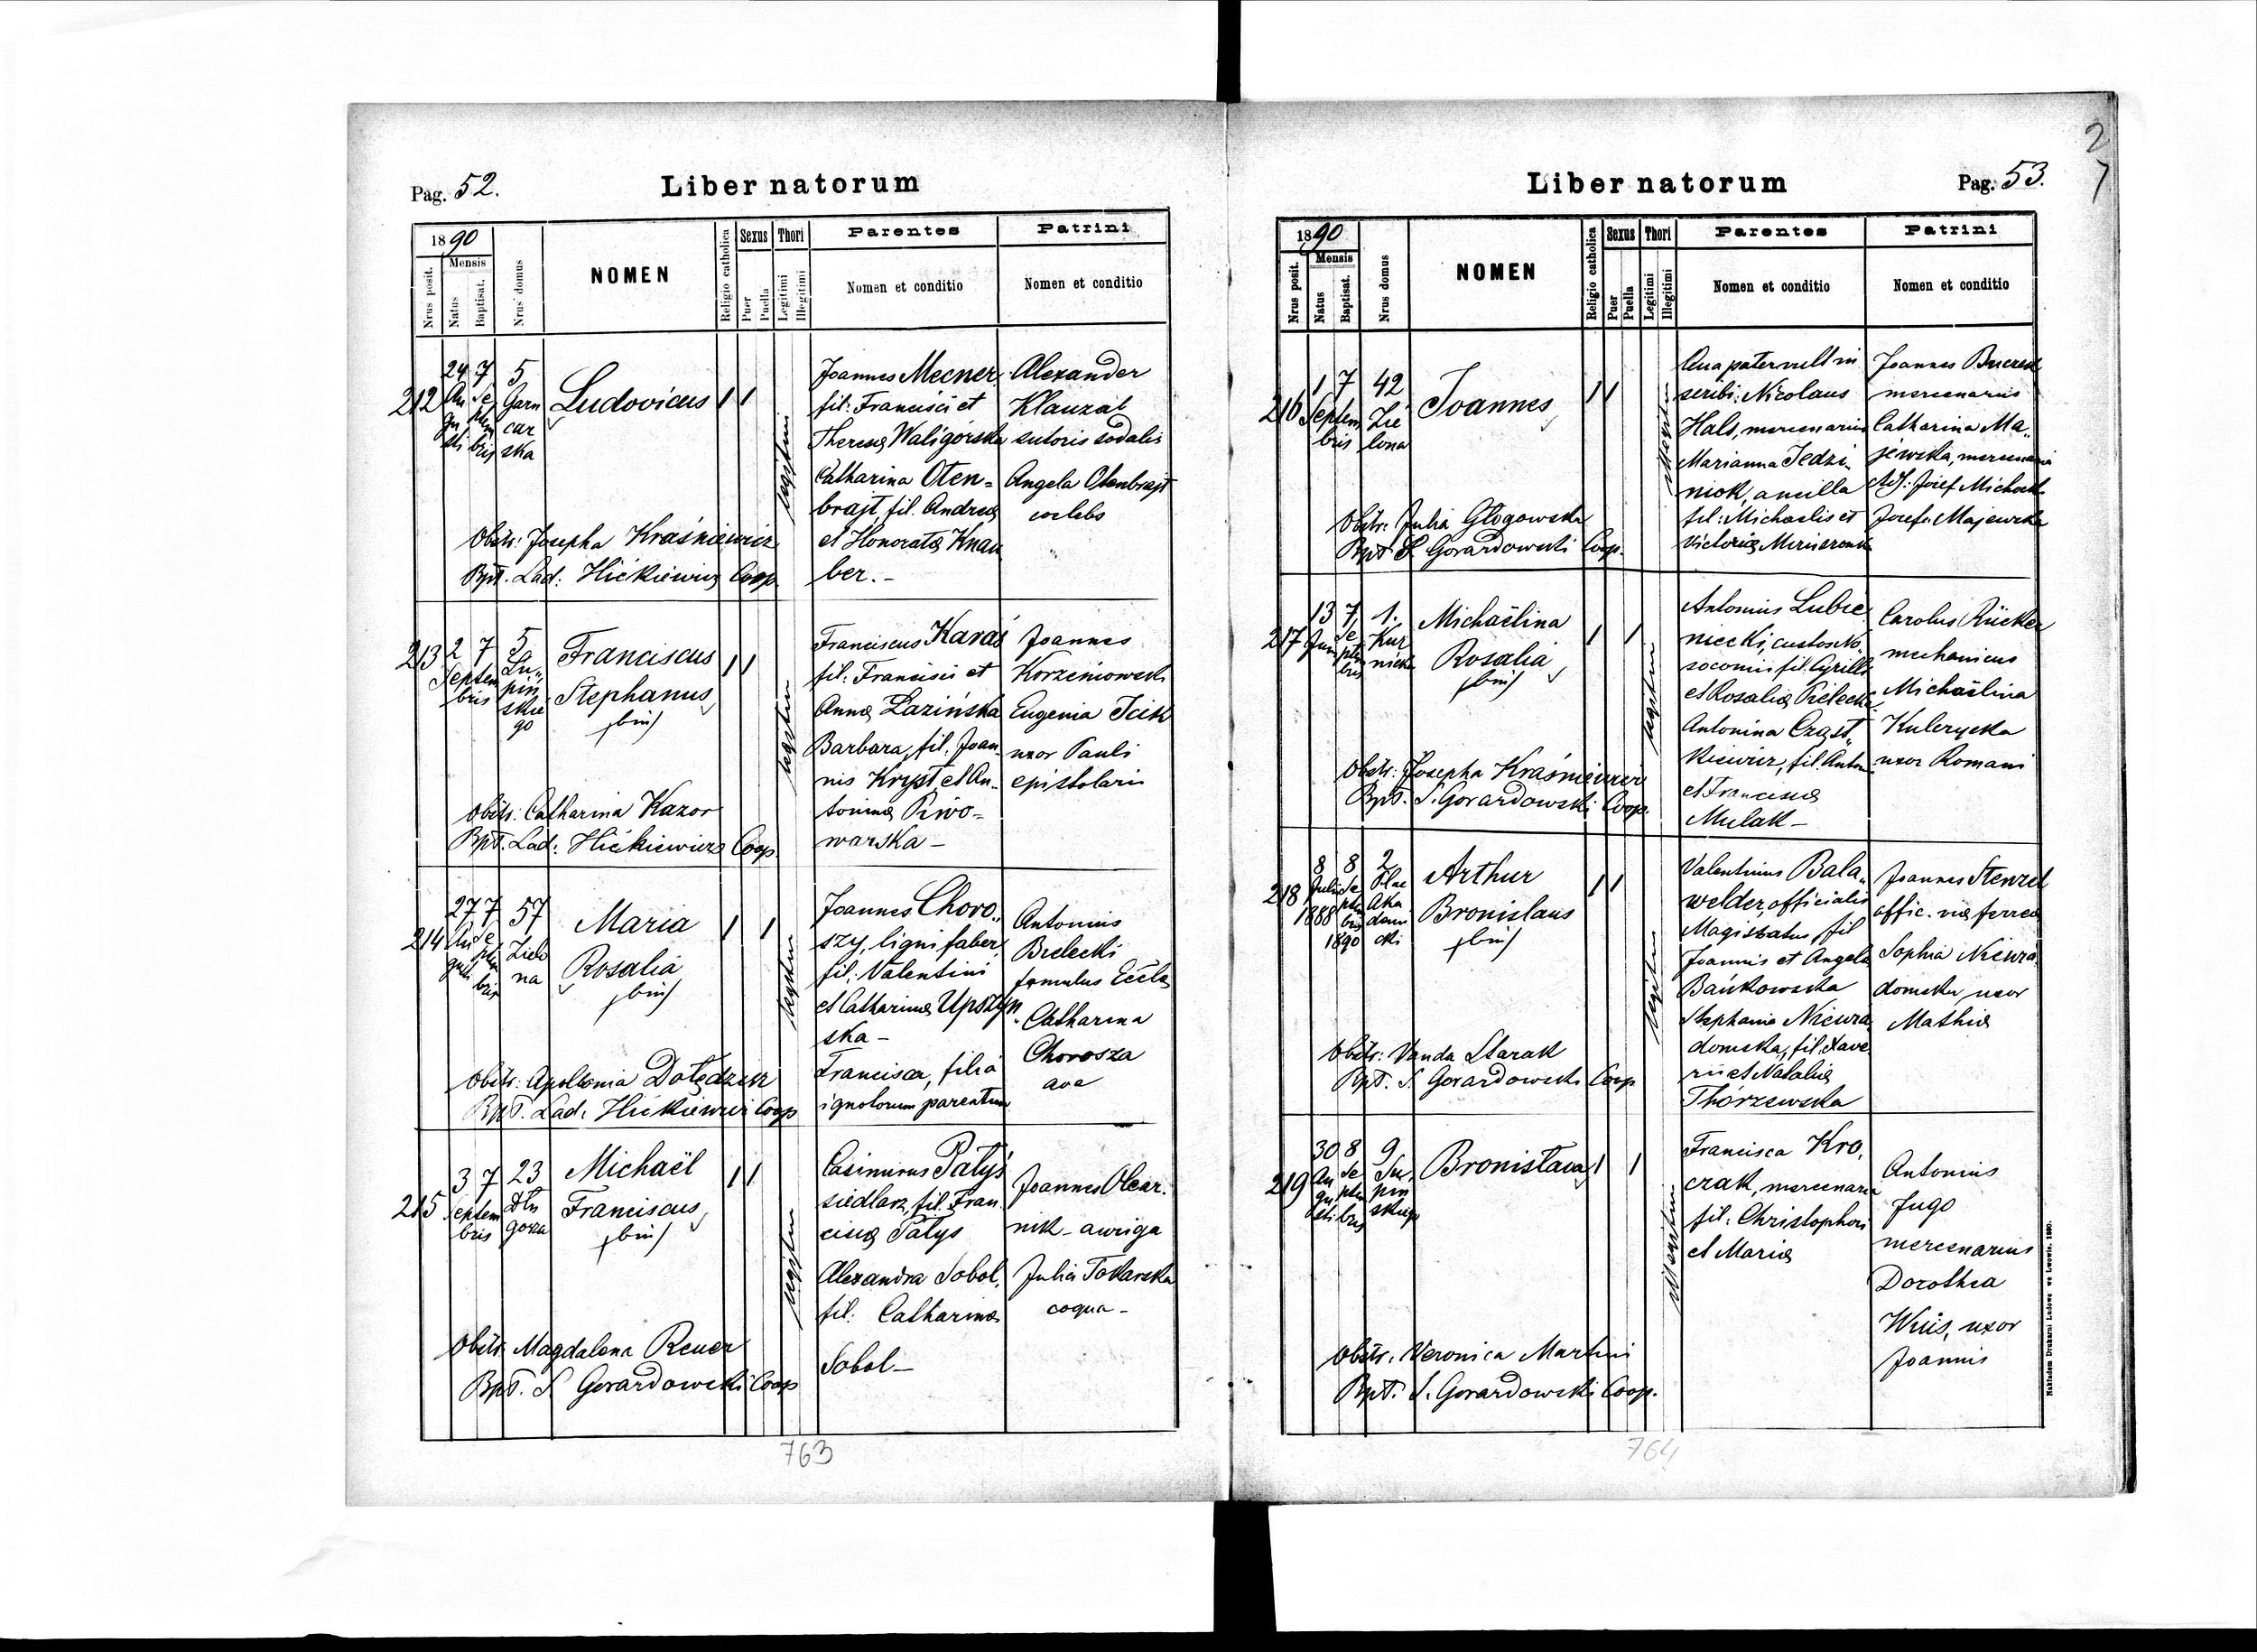 Pag. 52.
Liber natorum
1890
Mensis
Nrus posit.
Natus
Baptisat.
Nrus domus
NOMEN
Religio catholica
Sexus
Puer
Puella
Thori
Legitimi
Illegitimi
Parentes
Nomen et conditio
Patrini
Nomen et conditio
212
24 Au gu sti
7 Se ptem bris
5 Garn car ska
Ludovicus
Joannes Mecner
fil: Francisci et
Theresæ Waligórska
Catharina Oten=
brajt fil. Andreæ
et Honoratæ Knau
ber. -
Alexander
Klauzal
sutoris sodalis
Angela Otenbrajt
coelebs
Obstr: Josepha Kraśniewicz
Bpt. Lad: Hićkiewicz Coop.
213
2 Septem bris
7
5 Su„ pin skie go
Franciscus
Stephanus
(bin)
Franciscus Karaś
fil: Francisci et
Annæ Łazińska
Barbara, fil. Joan
nis Kryst, et An-
toninæ Piwo=
warska -
Joannes
Korzeniowski
Eugenia Icik
uxor Pauli
epistolaris
Obstr: Catharina Kazor
Bpt. Lad: Hićkiewicz Coop.
214
27 Au gusti
7 Se ptem bris
57 Zielo na
Maria
Rosalia
(bin)
Joannes Choro„
szy, ligni faber,
fil: Valentini
et Catharinæ Upszyń
ska -
Francisca, filia
ignotorum parentum
Antonius
Bielecki
famulus Eccle
Catharina
Chorosza
ava
Obstr: Apollonia Dołędzka
Bpt. Lad: Hićkiewicz Coop
215
3 Septem bris
7
23 Dłu goza
Michaël
Franciscus
(bin)
Casimirus Patyś
siedlarz, fil. Fran
ciscæ Patys
Alexandra Sobol,
fil: Catharinæ
Sobol -
Joannes Olear.
nik - auriga
Julia Tokarska
coqua -
Obstr. Magdalena Reuer
Bpt. S Gorardowski Coop
763
Pag. 53.
Liber natorum
1890
Mensis
Nrus posit.
Natus
Baptisat.
Nrus domus
NOMEN
Religio catholica
Sexus
Puer
Puella
Thori
Legitimi
Illegitimi
Parentes
Nomen et conditio
Patrini
Nomen et conditio
216
1 Septem bris
7
42 Zie lona
Joannes
Qua pater vult in
scribi: Nicolaus
Hals, mercenarius
Marianna Jedzi
niok, ancilla
fil: Michaelis et
Joannes
mercenarius
Catharina Ma„
jewska, mercenaria
Josefa Majewska
Obstr: Julia Głogowska
Bpt S Gorardowski Coop.
217
13 Juni
7 Se ptem bris
1. Kur nicka
Michaëlina
Rosalia
(bin)
Antonius Lubie
niecki, custos No
socomii fil. Cyrilli
et Rosaliæ Pielecka
Antonina Cząst„
kiewicz, fil. Antoni
et Franciscæ
Mulak -
Carolus Rücker
mechanicus
Michaëlina
Kulerycka
uxor Romani
Obstr: Josepha Kraśniewicz
Bpt. S. Gorardowski Coop.
218
8 Julii 1888
8 Se ptem bris 1890
2 Plac Aka demi cki
Arthur
Bronislaus
(bin)
Valentinus Bala„
welder, officialis
Magistatus, fil
Joannis et Angelæ
Bańkowska
Stephania Niewia
domska, fil: Xave
rii et Nataliæ
Thórzewska
Joannes Stenzel
offic. viæ ferreæ
Sophia Niewia
domska, uxor
Mathiæ
Obstr: Vanda Starak
Bpt. S Gorardowski Coop
219
30 Au gu sti
8 Se ptem bris
9 Su, pin skiego
Bronislava
Francisca Kro,
czak, mercenaria
fil: Christophori
et Mariæ
Antonius
Jugo
mercenarius
Dorothea
Wiis, uxor
Joannis
Obstr. Veronica Martini
Bpt. S. Gorardowski Coop.
764
Nakładem Drukarni Ludowej we Lwowie. 1890.